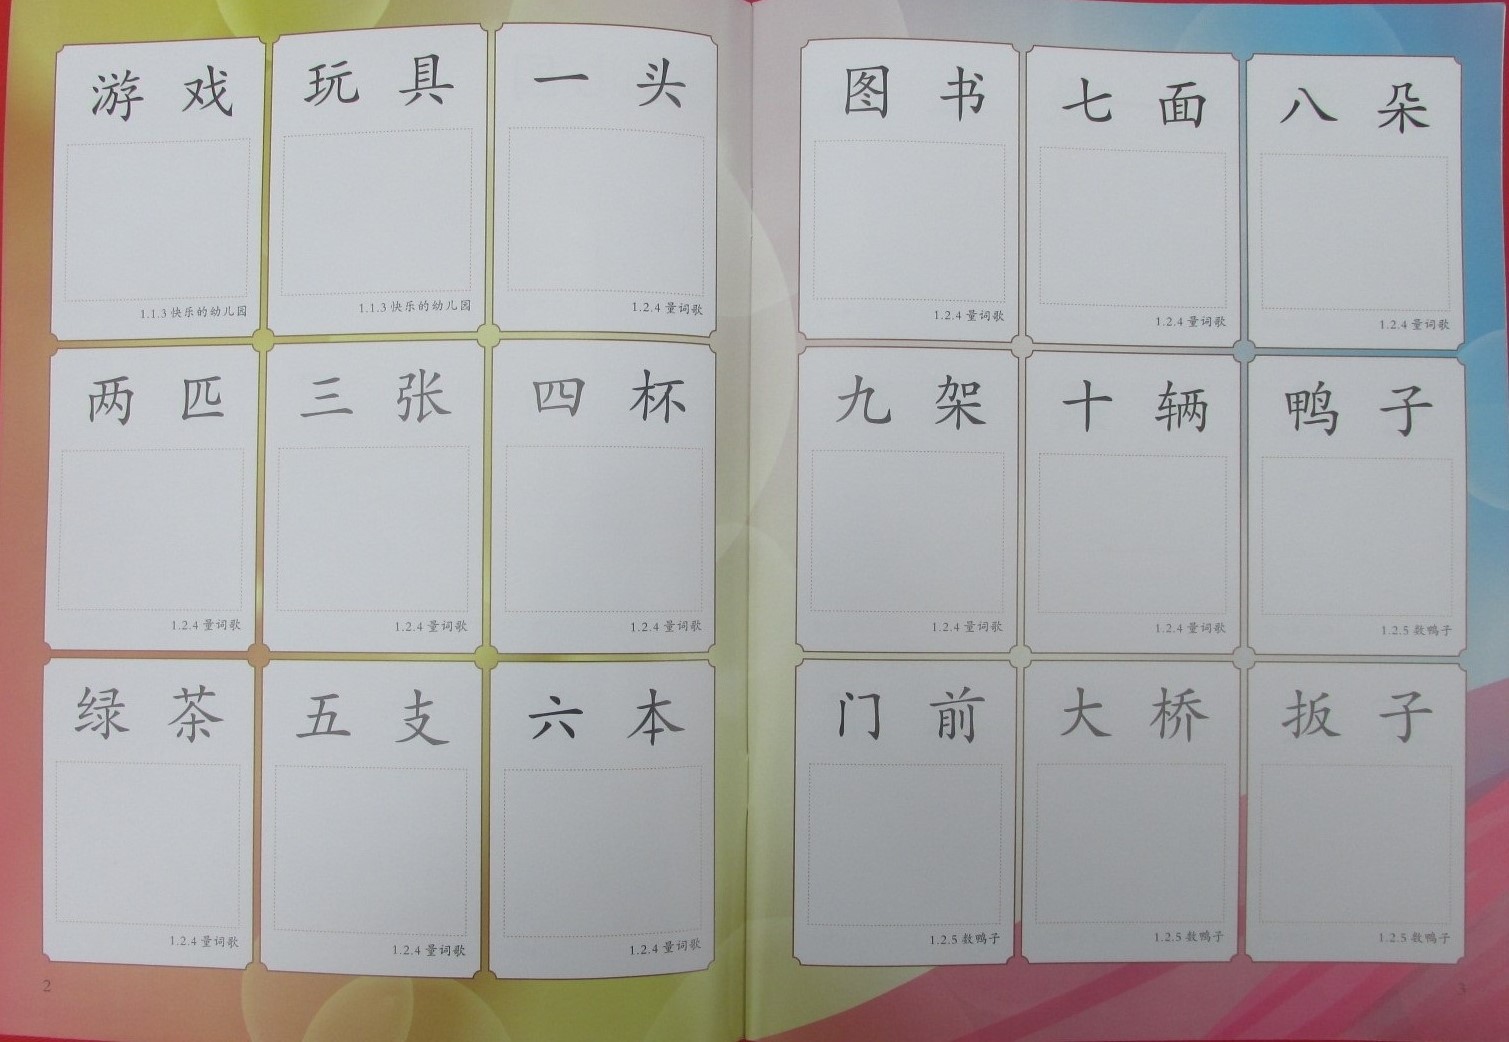 游戏
1.1.3 快乐的幼儿园
玩具
1.1.3 快乐的幼儿园
一头
1.2.4 量词歌
两匹
1.2.4 量词歌
三张
1.2.4 量词歌
四杯
1.2.4 量词歌
绿茶
1.2.4 量词歌
五支
1.2.4 量词歌
六本
1.2.4 量词歌
2
图书
1.2.4 量词歌
七面
1.2.4 量词歌
八朵
1.2.4 量词歌
九架
1.2.4 量词歌
十辆
1.2.4 量词歌
鸭子
1.2.5 数鸭子
门前
1.2.5 数鸭子
大桥
1.2.5 数鸭子
扳子
1.2.5 数鸭子
3